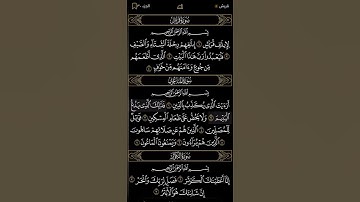 قريش الجزء ٣٠
سُورَةُ قُرَيْشٍ
بِسْمِ اللَّهِ الرَّحْمَٰنِ الرَّحِيمِ
لِإِيلَٰفِ قُرَيْشٍ ١ إِۦلَٰفِهِمْ رِحْلَةَ الشِّتَآءِ وَالصَّيْفِ
٢ فَلْيَعْبُدُوا رَبَّ هَٰذَا الْبَيْتِ ٣ الَّذِىٓ أَطْعَمَهُم
مِّن جُوعٍ وَءَامَنَهُم مِّنْ خَوْفٍۭ ٤
سُورَةُ المَاعُونِ
بِسْمِ اللَّهِ الرَّحْمَٰنِ الرَّحِيمِ
أَرَءَيْتَ الَّذِى يُكَذِّبُ بِالدِّينِ ١ فَذَٰلِكَ الَّذِى يَدُعُّ
الْيَتِيمَ ٢ وَلَا يَحُضُّ عَلَىٰ طَعَامِ الْمِسْكِينِ ٣ فَوَيْلٌ
لِّلْمُصَلِّينَ ٤ الَّذِينَ هُمْ عَن صَلَاتِهِمْ سَاهُونَ
٥ الَّذِينَ هُمْ يُرَآءُونَ ٦ وَيَمْنَعُونَ الْمَاعُونَ ٧
سُورَةُ الكَوْثَرِ
بِسْمِ اللَّهِ الرَّحْمَٰنِ الرَّحِيمِ
إِنَّآ أَعْطَيْنَٰكَ الْكَوْثَرَ ١ فَصَلِّ لِرَبِّكَ وَانْحَرْ ٢
إِنَّ شَانِئَكَ هُوَ الْأَبْتَرُ ٣